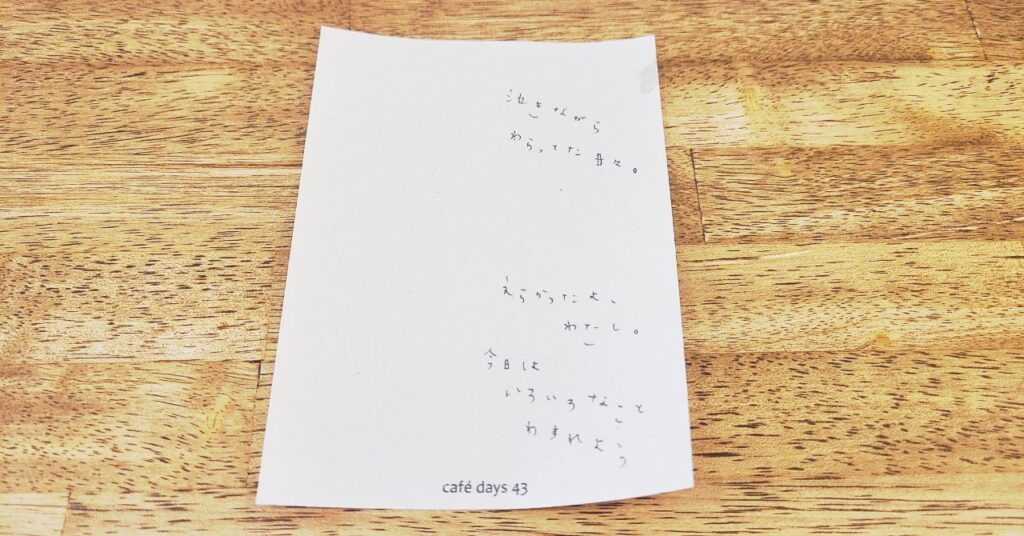 泣きながら
わらってた日々。
えらかったよ、
わたし。
今日は
いろいろなこと
わすれよう
café days 43